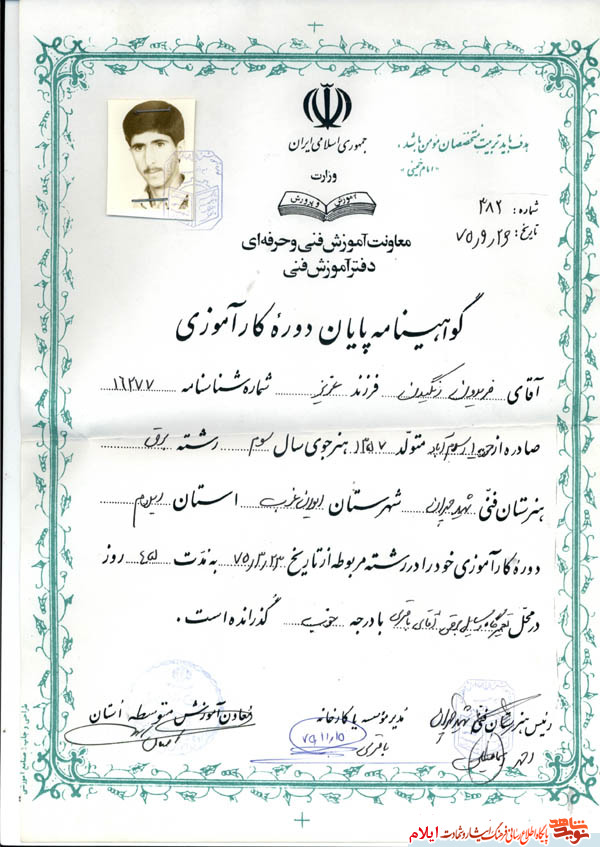 جمهوری اسلامی ایران
هدف باید تربیت متخصصان مؤمن باشد.
«امام خمینی»
وزارت
آموزش و پرورش
شماره: ۴۸۲
تاریخ: ۷۵٫۹٫۲۶
معاونت آموزش فنی و حرفه‌ای
دفتر آموزش فنی
گواهینامه پایان دورهٔ کارآموزی
آقای فریدون زنگیدن فرزند عزیز شماره شناسنامه ۱۶۲۷۷
صادره از متولّد ۱۳۵۷ هنرجوی سال سوم رشته برق
هنرستان فنّی شهید چمران شهرستان ایوان غرب استان ایلام
دورهٔ کارآموزی خود را در رشته مربوطه از تاریخ ۷۵٫۳٫۲۳ به مدّت ۴۵ روز
در محل تعمیرگاه وسایل برقی آقای باقری با درجه خوب گذرانده است.
رئیس هنرستان فنّی شهید چمران
مدیر مؤسسه یا کارخانه
معاون آموزش متوسطه استان
باقری
نوید شاهد
پایگاه اطلاع رسانی فرهنگ ایثار و شهادت ایلام